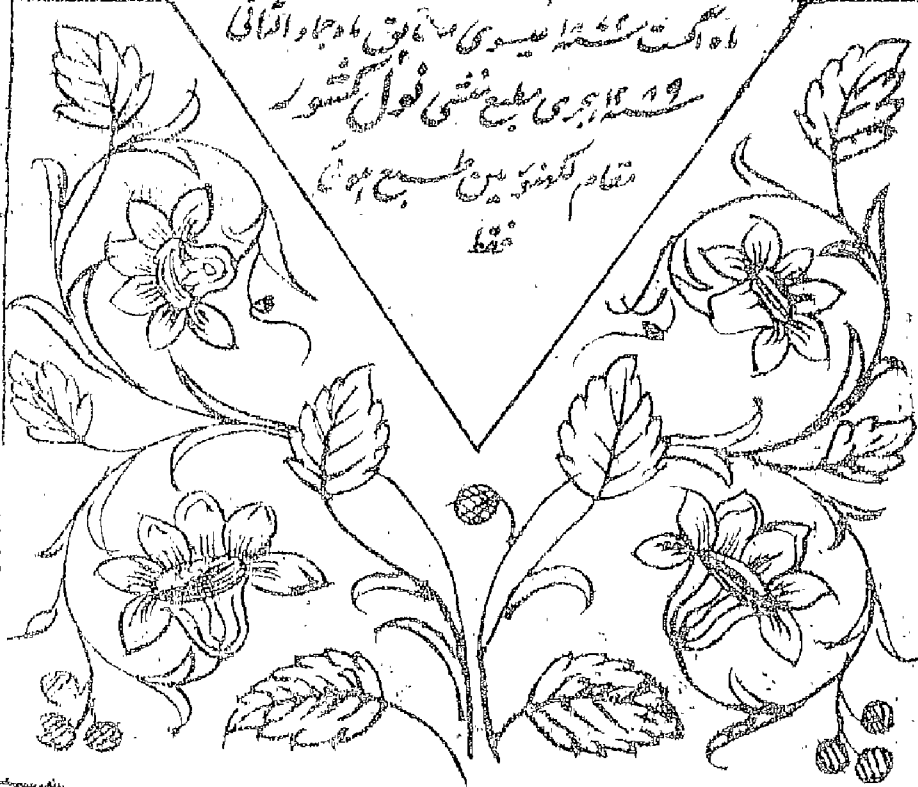 ماہ اگست سنہ ۱۸۷۲ عیسوی مطابق ماہ جماد الثانی
سنہ ۱۲۸۹ ہجری مطبع منشی نول کشور
مقام لکھنؤ مین طبع ہوئی
فقط